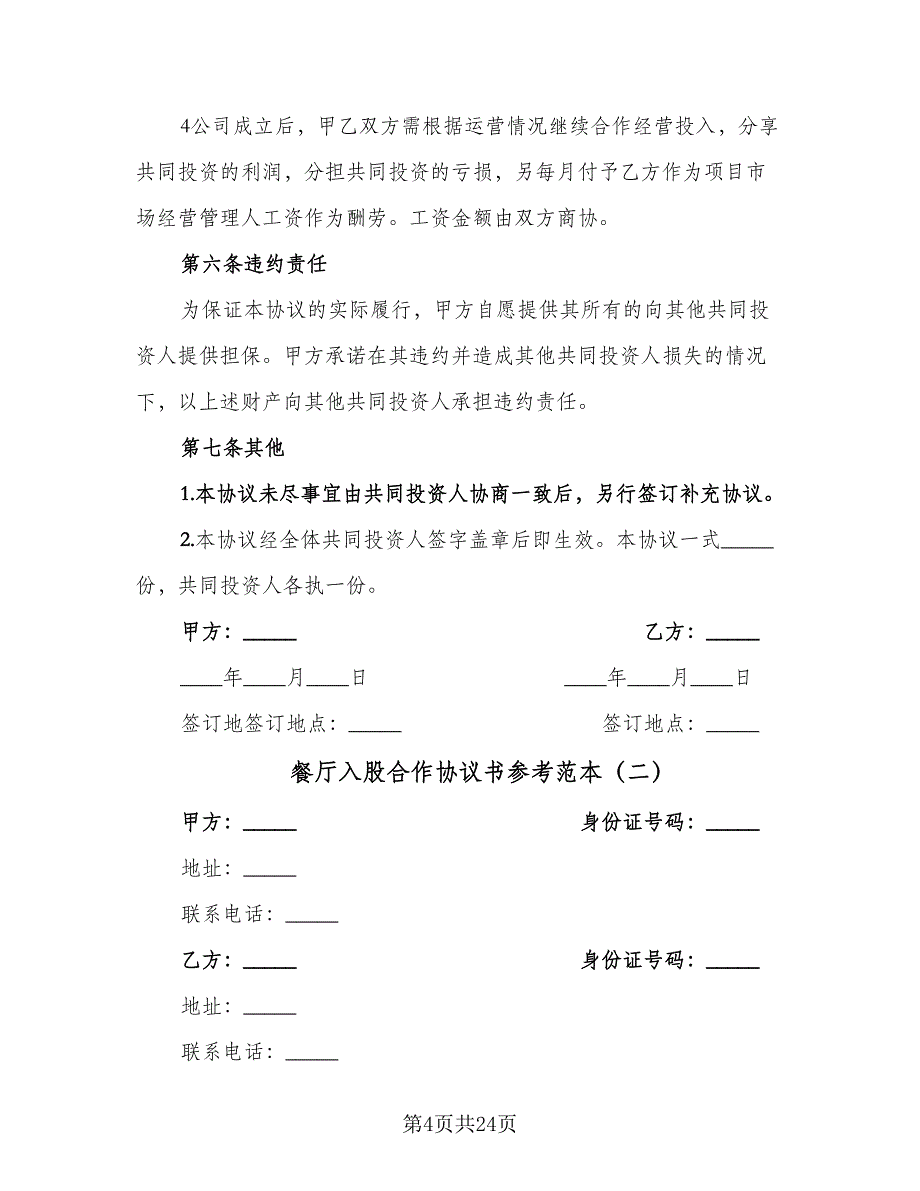 4公司成立后，甲乙双方需根据运营情况继续合作经营投入，分享
共同投资的利润，分担共同投资的亏损，另每月付予乙方作为项目市
场经营管理人工资作为酬劳。工资金额由双方商协。
第六条违约责任
为保证本协议的实际履行，甲方自愿提供其所有的向其他共同投
资人提供担保。甲方承诺在其违约并造成其他共同投资人损失的情况
下，以上述财产向其他共同投资人承担违约责任。
第七条其他
1.本协议未尽事宜由共同投资人协商一致后，另行签订补充协议。
2.本协议经全体共同投资人签字盖章后即生效。本协议一式_____
份，共同投资人各执一份。
甲方：_____ 乙方：_____
____年____月____日 ____年____月____日
签订地签订地点：_____ 签订地点：_____
餐厅入股合作协议书参考范本（二）
甲方：_____ 身份证号码：_____
地址：_____
联系电话：_____
乙方：_____ 身份证号码：_____
地址：_____
联系电话：_____
第4页共24页